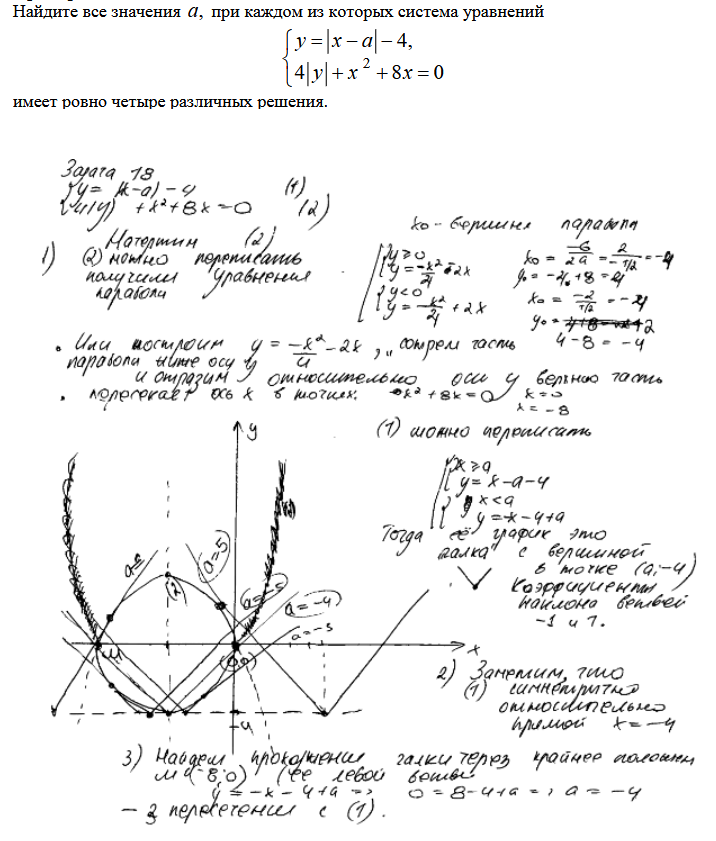 Найдите все значения a, при каждом из которых система уравнений
{ y = |x − a| − 4,
4|y| + x² + 8x = 0
имеет ровно четыре различных решения.
Задача 18
{ y = |x-a| - 4 (1)
4|y| + x² + 8x = 0 (2)
x₀ - вершина парабол
1) (2)
(2) можно переписать
получили уравнения
параболы
y ≥ 0
y = -x²/4 - 2x
y < 0
y = -x²/4 + 2x
y₀ = -4 + 8 = 4
4 - 8 = -4
• Или построим y = -x²/4 - 2x, сотрем часть
параболы ниже оси y
и отразим относительно оси y верхнюю часть
• пересекает ось x в точках. x² + 8x = 0 x = 0
x = -8
(1) можно переписать
x ≥ a
y = x - a - 4
x < a
y = -x - 4 + a
Тогда её график это
"галка" с вершиной
в точке (a; -4)
Коэффициенты
наклона ветвей
-1 и 1.
y
a=5
(2)
a=-5
a=-4
a=-3
M
x
-4
2) Заметим, что
(1) симметрично
относительно
прямой x = -4
3) Найдем прохождение галки через крайнее положен
M (-8; 0) (ее левой ветви
y = -x - 4 + a => 0 = 8 - 4 + a =, a = -4
- 3 пересечения с (1).